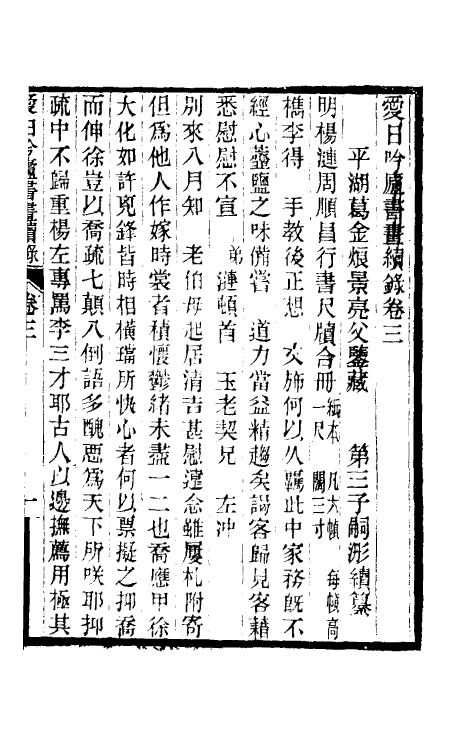 愛日吟廬書畫續錄卷三
平湖葛金烺景亮父鑒藏　第三子嗣浵續纂
明楊漣周順昌行書尺牘合冊紙本　凡六幀　每幀高一尺　闊三寸
檇李得　手教後正想　文斾何以久羈此中家務旣不
經心虀鹽之味備嘗　道力當益精趨矣謁客歸見客藉
悉慰慰不宣　弟漣頓首　玉老契兄　左冲
別來八月知　老伯母起居淸吉甚慰遠念雖屢札附寄
但爲他人作嫁時裳者積懷鬱緖未盡一二也喬應甲徐
大化如許兇鋒皆時相橫璫所快心者何以票擬之抑喬
而伸徐豈以喬疏七顛八倒語多醜惡爲天下所咲耶抑
疏中不歸重楊左專罵李三才耶古人以邊撫薦用極其
愛日吟廬書畫續錄　卷三　一